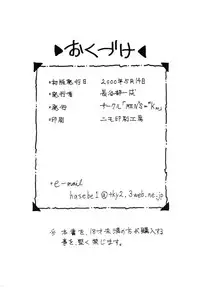 おくづけ
・初版発行日 2000年5月14日
・発行者 長谷部一成
・発行 サークル「MEN'S=KM」
・印刷 ニモ印刷工房
・e-mail
hasebe1@tky2.3web.ne.jp
※本書を、18才未満の方が購入する
事を、堅く禁じます。